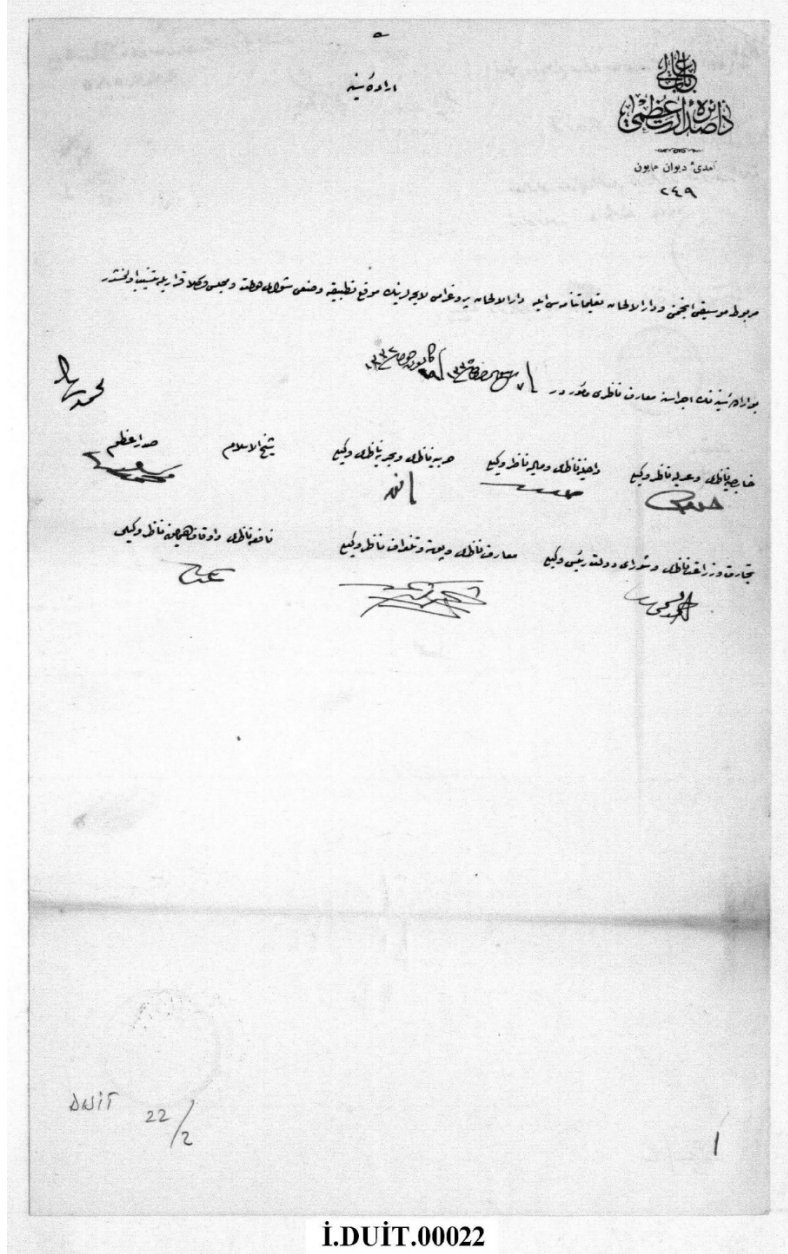 باب عالی
دائرۀ صدارت عظمی
آمدیٔ دیوان همایون
٢٤٩
ارادۀ سنیه
مربوط موسیقی انجمنی و دار الالحان تعلیماتنامه‌سی ایله دار الالحان پروغرامی لایحه‌لرینك موقع تطبیقه وضعی شورای دولت و مجلس وکلا قراریله تنسیب اولنمشدر
بو ارادۀ سنیه‌نك اجراسنه معارف ناظری مأموردر
محمد رشاد
صدر اعظم
شیخ الاسلام
حربیه ناظری و بحریه ناظری وکیلی
داخلیه ناظری و مالیه ناظر وکیلی
خارجیه ناظری و عدلیه ناظر وکیلی
نافعه ناظری و اوقاف همایون ناظر وکیلی
معارف ناظری و پوسته و تلغراف ناظر وکیلی
تجارت و زراعت ناظری و شورای دولت رئیس وکیلی
DUİT 22/2
1
İ.DUİT.00022